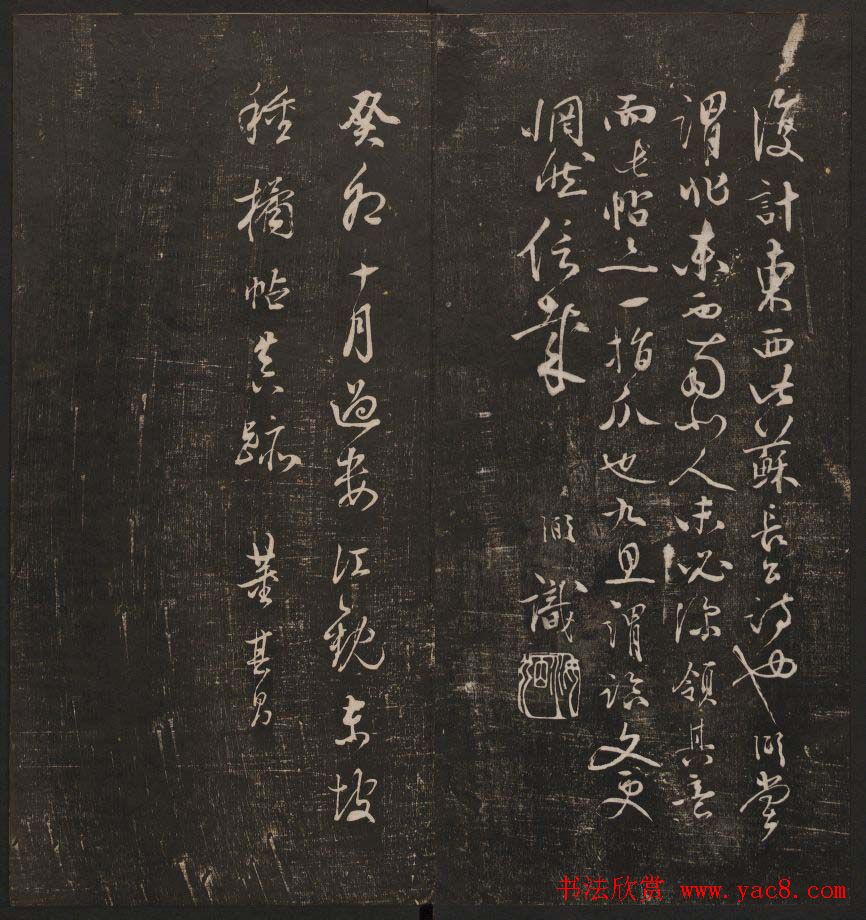 復計東西此蘇長公詩也嘗
謂非東西南北人未必深領其意
而此帖之一指爪也九謂文更
惘然信哉 識
癸卯十月過婁江觀東坡
種橘帖真跡 董其昌
书法欣赏 www.yac8.com